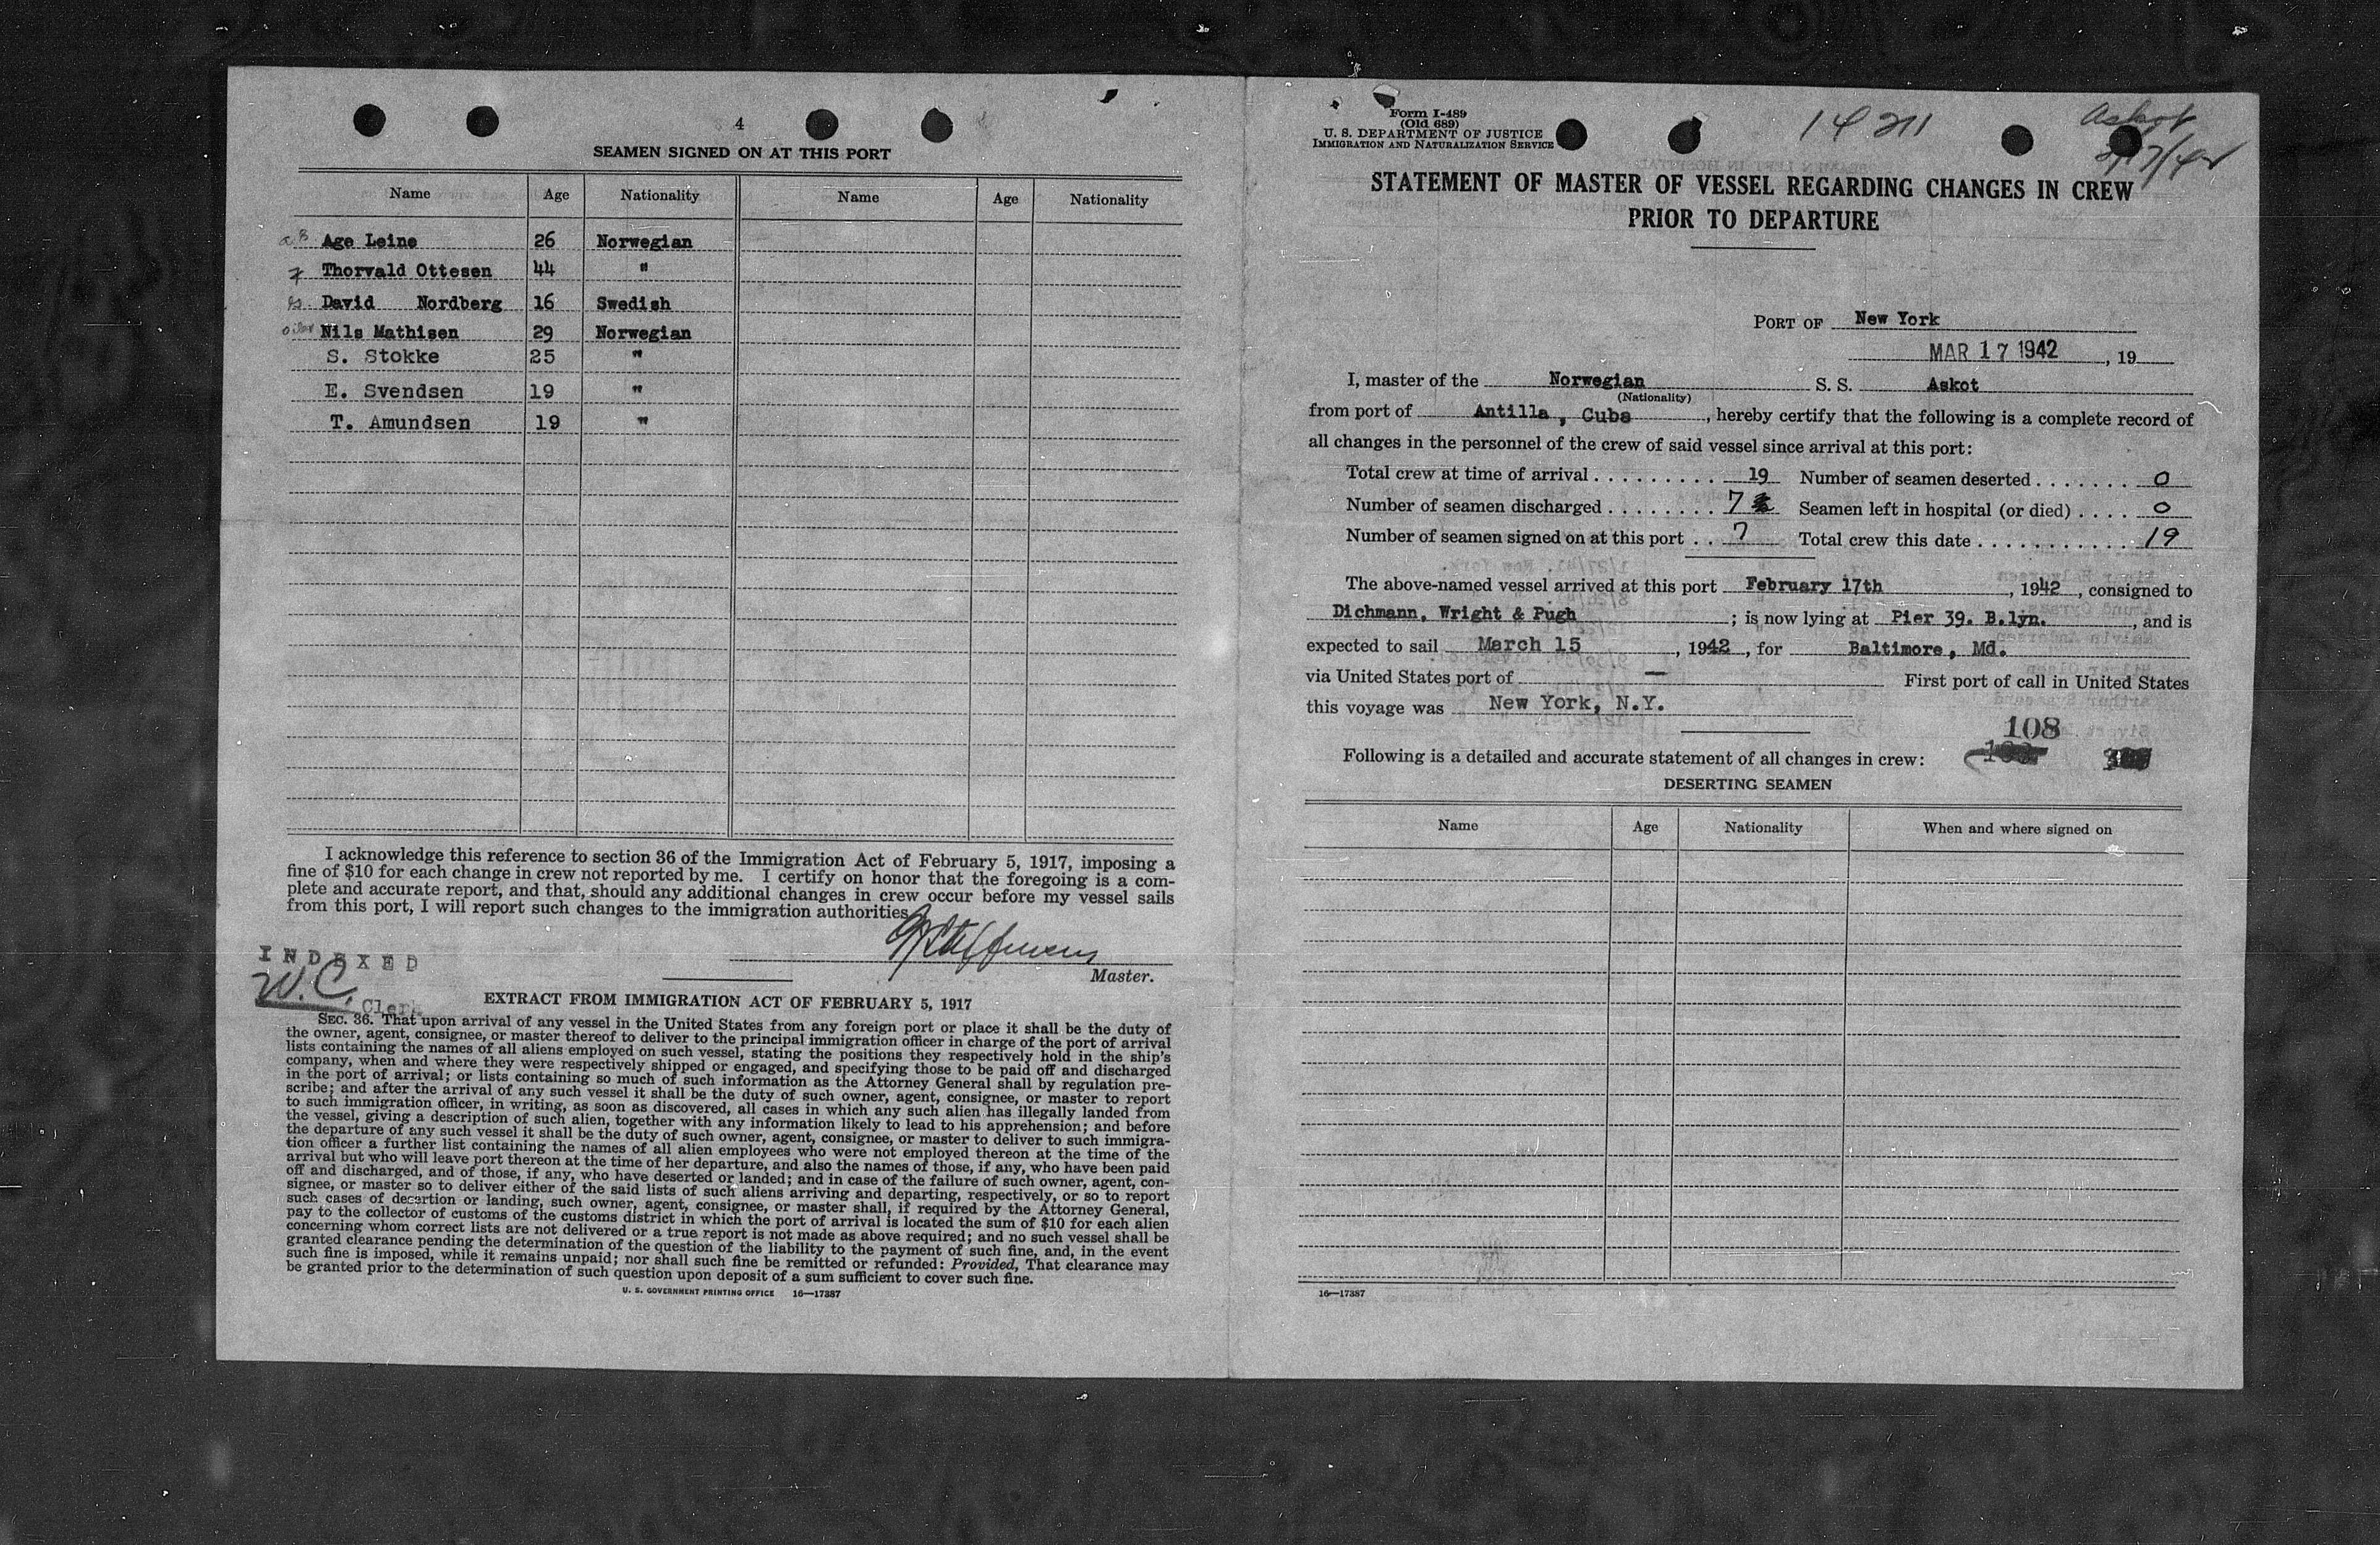 4
SEAMEN SIGNED ON AT THIS PORT
Name Age Nationality Name Age Nationality
Age Leine 26 Norwegian
Thorvald Ottesen 44 "
David Nordberg 16 Swedish
oiler Nils Mathisen 29 Norwegian
S. Stokke 25 "
E. Svendsen 19 "
T. Amundsen 19 "
I acknowledge this reference to section 36 of the Immigration Act of February 5, 1917, imposing a
fine of $10 for each change in crew not reported by me. I certify on honor that the foregoing is a com-
plete and accurate report, and that, should any additional changes in crew occur before my vessel sails
from this port, I will report such changes to the immigration authorities
Master.
INDEXED
W.C. Clerk
EXTRACT FROM IMMIGRATION ACT OF FEBRUARY 5, 1917
SEC. 36. That upon arrival of any vessel in the United States from any foreign port or place it shall be the duty of
the owner, agent, consignee, or master thereof to deliver to the principal immigration officer in charge of the port of arrival
lists containing the names of all aliens employed on such vessel, stating the positions they respectively hold in the ship's
company, when and where they were respectively shipped or engaged, and specifying those to be paid off and discharged
in the port of arrival; or lists containing so much of such information as the Attorney General shall by regulation pre-
scribe; and after the arrival of any such vessel it shall be the duty of such owner, agent, consignee, or master to report
to such immigration officer, in writing, as soon as discovered, all cases in which any such alien has illegally landed from
the vessel, giving a description of such alien, together with any information likely to lead to his apprehension; and before
the departure of any such vessel it shall be the duty of such owner, agent, consignee, or master to deliver to such immigra-
tion officer a further list containing the names of all alien employees who were not employed thereon at the time of the
arrival but who will leave port thereon at the time of her departure, and also the names of those, if any, who have been paid
off and discharged, and of those, if any, who have deserted or landed; and in case of the failure of such owner, agent, con-
signee, or master so to deliver either of the said lists of such aliens arriving and departing, respectively, or so to report
such cases of desertion or landing, such owner, agent, consignee, or master shall, if required by the Attorney General,
pay to the collector of customs of the customs district in which the port of arrival is located the sum of $10 for each alien
concerning whom correct lists are not delivered or a true report is not made as above required; and no such vessel shall be
granted clearance pending the determination of the question of the liability to the payment of such fine, and, in the event
such fine is imposed, while it remains unpaid; nor shall such fine be remitted or refunded: Provided, That clearance may
be granted prior to the determination of such question upon deposit of a sum sufficient to cover such fine.
U. S. GOVERNMENT PRINTING OFFICE 16—17387
Form I-489
(Old 689)
U. S. DEPARTMENT OF JUSTICE
IMMIGRATION AND NATURALIZATION SERVICE
14211
Askot
STATEMENT OF MASTER OF VESSEL REGARDING CHANGES IN CREW
PRIOR TO DEPARTURE
PORT OF New York
MAR 17 1942, 19
I, master of the Norwegian S. S. Askot
(Nationality)
from port of Antilla, Cuba, hereby certify that the following is a complete record of
all changes in the personnel of the crew of said vessel since arrival at this port:
Total crew at time of arrival . . . . . . . . . 19 Number of seamen deserted . . . . . . . 0
Number of seamen discharged . . . . . . . . 7 Seamen left in hospital (or died) . . . . 0
Number of seamen signed on at this port . . 7 Total crew this date . . . . . . . . . . . . 19
The above-named vessel arrived at this port February 17th, 1942, consigned to
Dichmann, Wright & Pugh; is now lying at Pier 39. B.lyn., and is
expected to sail March 15, 1942, for Baltimore, Md.
via United States port of — First port of call in United States
this voyage was New York, N.Y.
108
Following is a detailed and accurate statement of all changes in crew:
DESERTING SEAMEN
Name Age Nationality When and where signed on
16—17387